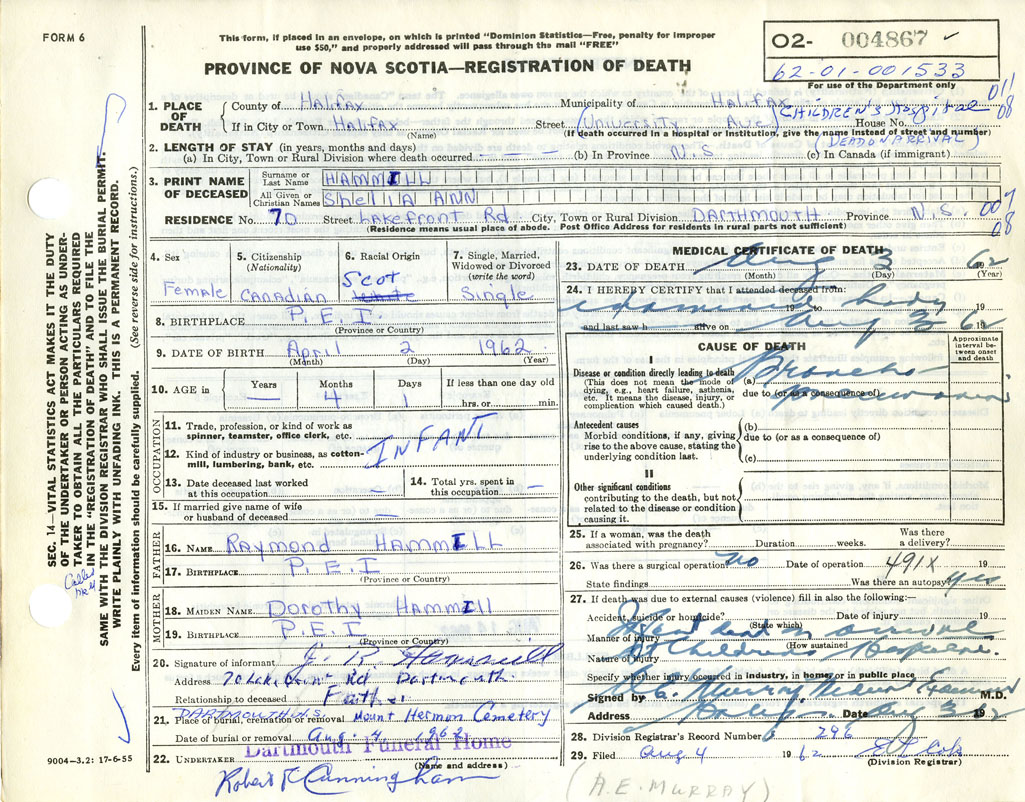 FORM 6
This form, if placed in an envelope, on which is printed "Dominion Statistics—Free, penalty for improper
use $50," and properly addressed will pass through the mail "FREE"
PROVINCE OF NOVA SCOTIA—REGISTRATION OF DEATH
O2- 004867 ✓
62-01-001533
For use of the Department only
011
08
1. PLACE OF DEATH
County of Halifax Municipality of Halifax
CHILDREN'S Hospital
If in City or Town Halifax Street (University Ave House No.
(Name) (If death occurred in a hospital or institution, give the name instead of street and number)
2. LENGTH OF STAY (in years, months and days) (DEAD ON ARRIVAL)
(a) In City, Town or Rural Division where death occurred — — — (b) In Province N.S. (c) In Canada (if immigrant)
3. PRINT NAME OF DECEASED
Surname or Last Name HAMMILL
All Given or Christian Names SHELIA ANN
007
08
RESIDENCE No. 70 Street Lakefront Rd City, Town or Rural Division DARTHMOUTH Province N.S.
(Residence means usual place of abode. Post Office Address for residents in rural parts not sufficient)
4. Sex Female
5. Citizenship (Nationality) CANADIAN
6. Racial Origin Scot White
7. Single, Married, Widowed or Divorced (write the word) Single
8. BIRTHPLACE P.E.I.
(Province or Country)
9. DATE OF BIRTH April 2 1962
(Month) (Day) (Year)
10. AGE in Years — Months 4 Days 1 If less than one day old hrs. or min.
OCCUPATION
11. Trade, profession, or kind of work as spinner, teamster, office clerk, etc.
INFANT
12. Kind of industry or business, as cotton-mill, lumbering, bank, etc.
13. Date deceased last worked at this occupation —
14. Total yrs. spent in this occupation —
15. If married give name of wife or husband of deceased —
FATHER
16. NAME Raymond HAMMILL
17. BIRTHPLACE P.E.I
(Province or Country)
MOTHER
18. MAIDEN NAME Dorothy HAMMIll
19. BIRTHPLACE P.E.I
(Province or Country)
20. Signature of informant J. R. Hammill
Address 70 Lake Front Rd Dartmouth.
Relationship to deceased Father
DARTMOUTH N.S
21. Place of burial, cremation or removal Mount Hermon Cemetery
Date of burial or removal Aug. 4 1962
Dartmouth Funeral Home
22. UNDERTAKER (Name and address)
Robert T Cunningham
9004—3.2: 17-6-55
MEDICAL CERTIFICATE OF DEATH
23. DATE OF DEATH Aug 3 1962
(Month) (Day) (Year)
24. I HEREBY CERTIFY that I attended deceased from:
examined body 19 to 19
and last saw h alive on Aug 3 62 19
CAUSE OF DEATH
Approximate interval between onset and death
I
Disease or condition directly leading to death
(This does not mean the mode of dying, e.g., heart failure, asthenia, etc. It means the disease, injury, or complication which caused death.)
(a) Broncho
due to (or as a consequence of) pneumonia
Antecedent causes
Morbid conditions, if any, giving rise to the above cause, stating the underlying condition last.
(b)
due to (or as a consequence of)
(c)
II
Other significant conditions
contributing to the death, but not related to the disease or condition causing it.
25. If a woman, was the death associated with pregnancy? Duration weeks. Was there a delivery?
26. Was there a surgical operation? No Date of operation 19
491X
State findings Was there an autopsy? yes
27. If death was due to external causes (violence) fill in also the following:—
Accident, suicide or homicide? Date of injury 19
(State which)
Infant dead on arrival
Manner of injury
(How sustained
at Childrens Hospital.
Nature of injury
Specify whether injury occurred in industry, in home, or in public place
Signed by A.E. Murray Medical Examiner M.D.
Address Halifax Date Aug 3 1962
28. Division Registrar's Record Number 296
29. Filed Aug 4 1962
(Division Registrar)
(A.E. MURRAY)
SEC. 14—VITAL STATISTICS ACT MAKES IT THE DUTY
OF THE UNDERTAKER OR PERSON ACTING AS UNDER-
TAKER TO OBTAIN ALL THE PARTICULARS REQUIRED
IN THE "REGISTRATION OF DEATH" AND TO FILE THE
SAME WITH THE DIVISION REGISTRAR WHO SHALL ISSUE THE BURIAL PERMIT.
WRITE PLAINLY WITH UNFADING INK. THIS IS A PERMANENT RECORD.
Every item of information should be carefully supplied. (See reverse side for instructions.)
Called